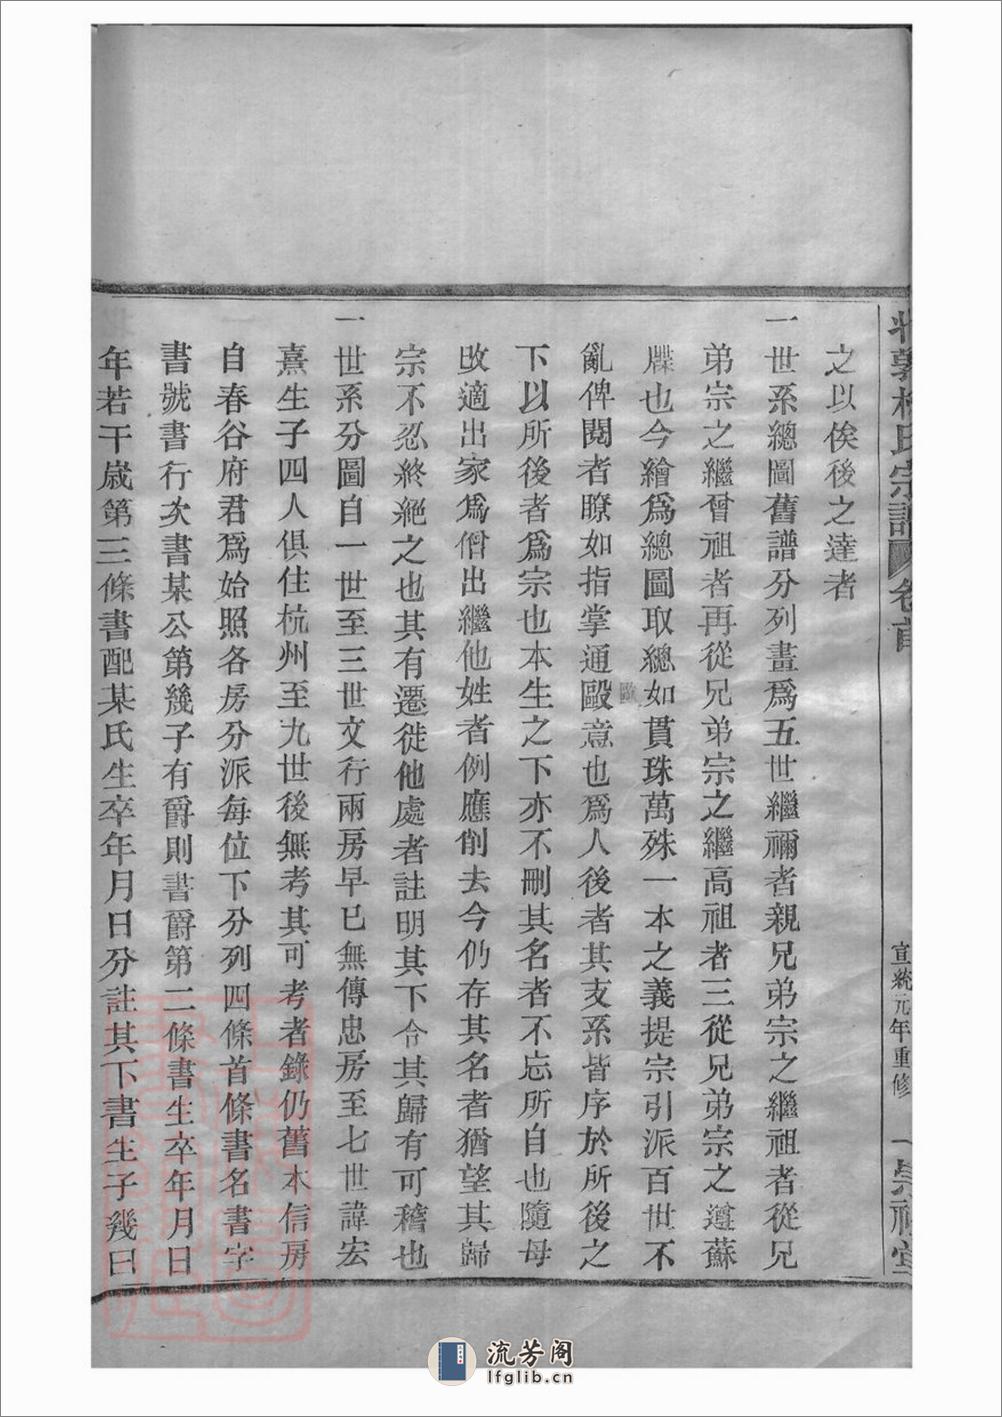 宗譜 卷首
宣統元年重修 一
之以俟後之達者
一世系總圖舊譜分列畫爲五世繼禰者親兄弟宗之繼祖者從兄
弟宗之繼曾祖者再從兄弟宗之繼高祖者三從兄弟宗之遵蘇
牒也今繪爲總圖取總如貫珠萬殊一本之義提宗引派百世不
亂俾閱者瞭如指掌通毆意也爲人後者其支系皆序於所後之
歐
下以所後者爲宗也本生之下亦不刪其名者不忘所自也隨母
改適出家爲僧出繼他姓者例應削去今仍存其名者猶望其歸
宗不忍終絕之也其有遷徙他處者註明其下令其歸有可稽也
一世系分圖自一世至三世文行兩房早已無傳忠房至七世諱宏
熹生子四人俱住杭州至九世後無考其可考者錄仍舊本信房
自春谷府君爲始照各房分派每位下分列四條首條書名書字
書號書行次書某公第幾子有爵則書爵第二條書生卒年月日
年若干歲第三條書配某氏生卒年月日分註其下書生子幾曰
流芳阁
lfglib.cn